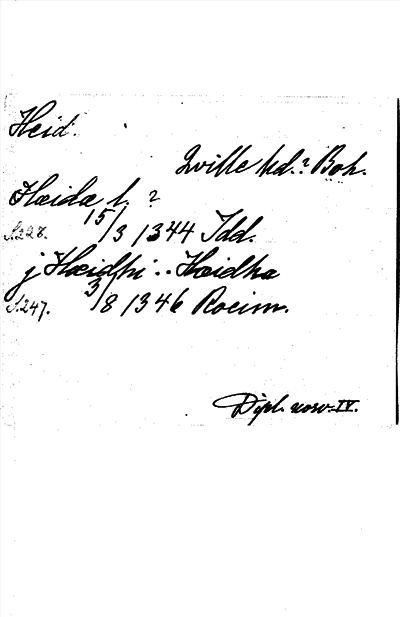 Heid.
Qville hd.? Boh.
Hæida l. ?
S. 228. 15/3 1344 Idd.
j Hæidþi .. Hæidha
S. 247. 3/8 1346 Roeim.
Dipl. norv. IV.